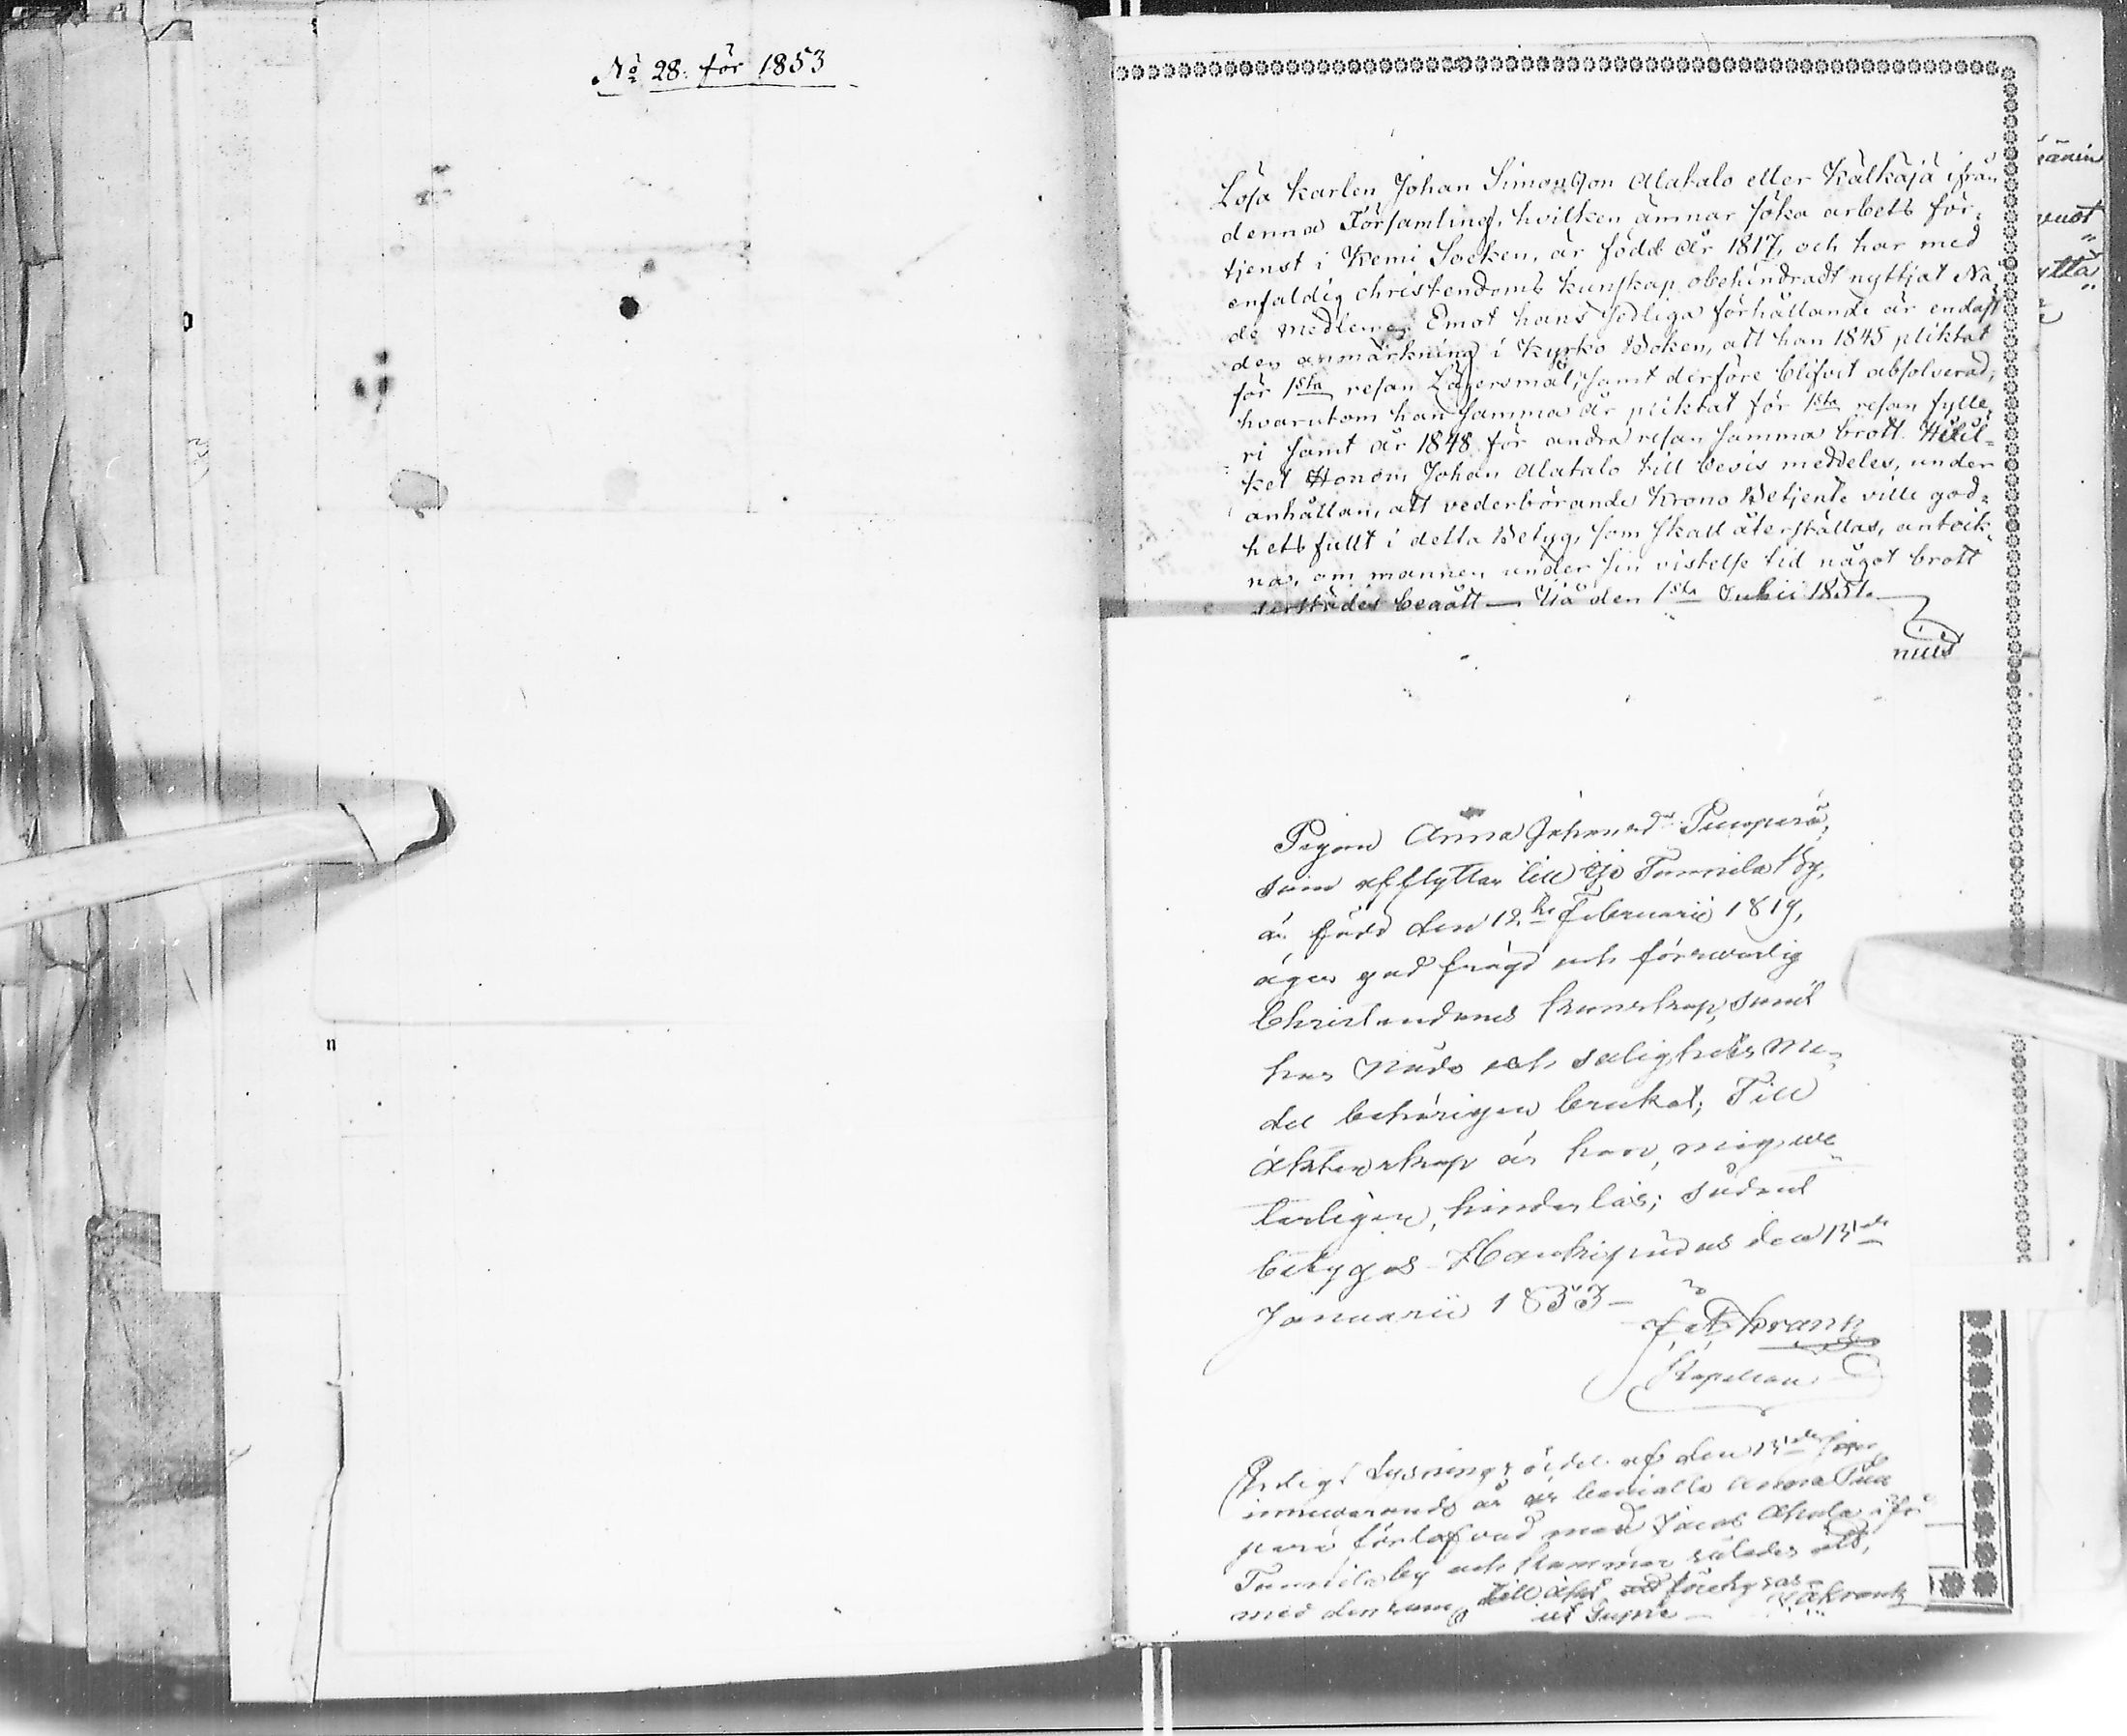 No 28. för 1853
Lösa karlen Johan Simonsson Alatalo eller Kälkäjä ifrån
denna Församling, hvilken ämnar söka arbets för-
tjenst i Kemi Socken, är född år 1817, och har med
enfaldig christendoms kunskap obehindradt nyttjat Nå-
de medlen. Emot hans sedliga förhållande är endast
den anmärkning i Kyrko Boken, att han 1845 pliktat
för 1sta resan Lägersmål, samt derföre blifvit absolverad,
hvarutom han samma år pliktat för 1sta resan fylle-
ri samt år 1848 för andra resan samma brott. Hvil-
ket Honom Johan Alatalo till bevis meddeles, under
anhållan, att vederbörande Krono Betjente ville god-
hetsfullt i detta Betyg, som skall återställas, anteck-
na, om mannen under sin vistelse tid något brott
derstädes begått — Ijå den 1sta Julii 1851.
Pigan Anna Johansdr Puuperä,
som afflyttar till Ijo Tannila by,
är född den 12te Februarii 1819,
äger god frägd och försvarlig
Christendoms kunskap, samt
har Nåde och salighets me-
del behörigen brukat; Till
äktenskap är hon, mig we-
terligen, hinderlös; Sådant
betygas Haukipudas den 13de
Januarii 1853 —
Kapellan
Enligt Lysnings sedel af den 13de
innevarande år är bemälte Anna Puu
perä förlofvad med Jacob Ahola ifr
Tannila by och kommer således att,
med densamme till äkt
ut supra —